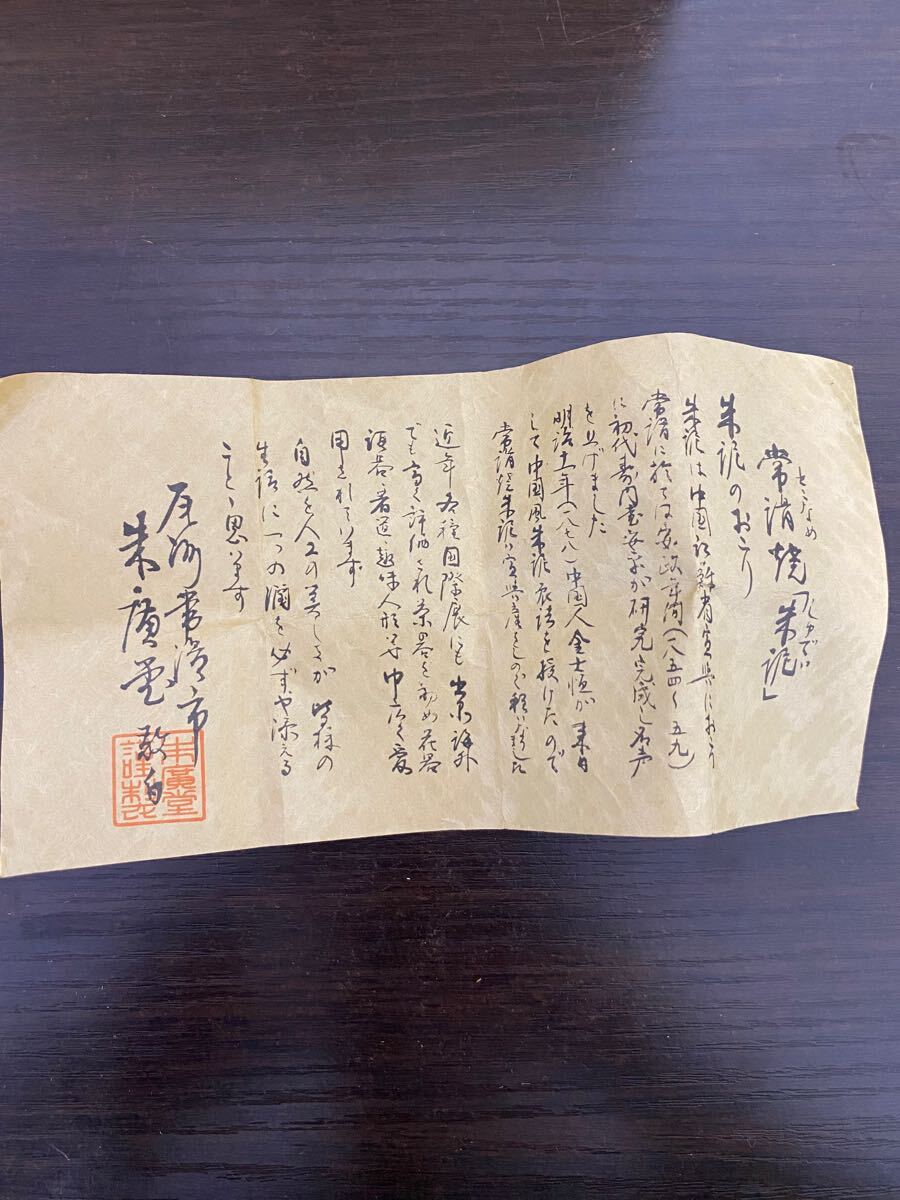 とこなめ しゅでい
常滑焼「朱泥」
朱泥のおこり
朱泥は中国江蘇省宜興におこり
常滑に於ては安政年間(一八五四〜五九)
に初代寿門堂 が研究完成し名声
を上げました
明治十一年(一八七八)中国人金士恒が来日
して中国風朱泥 法を授けたので
常滑焼朱泥は宜興 との 程 ました
近年各種国際展にも出京海外
でも高く評価され茶器を初め花器
酒器・香道・趣味人形等巾広く愛
用されています
自然と人工の美しさが皆様の
生活に一つの潤を必ずや添える
ことゝ思います
尾州常滑市
朱廣堂 敬白
朱廣堂
謹製